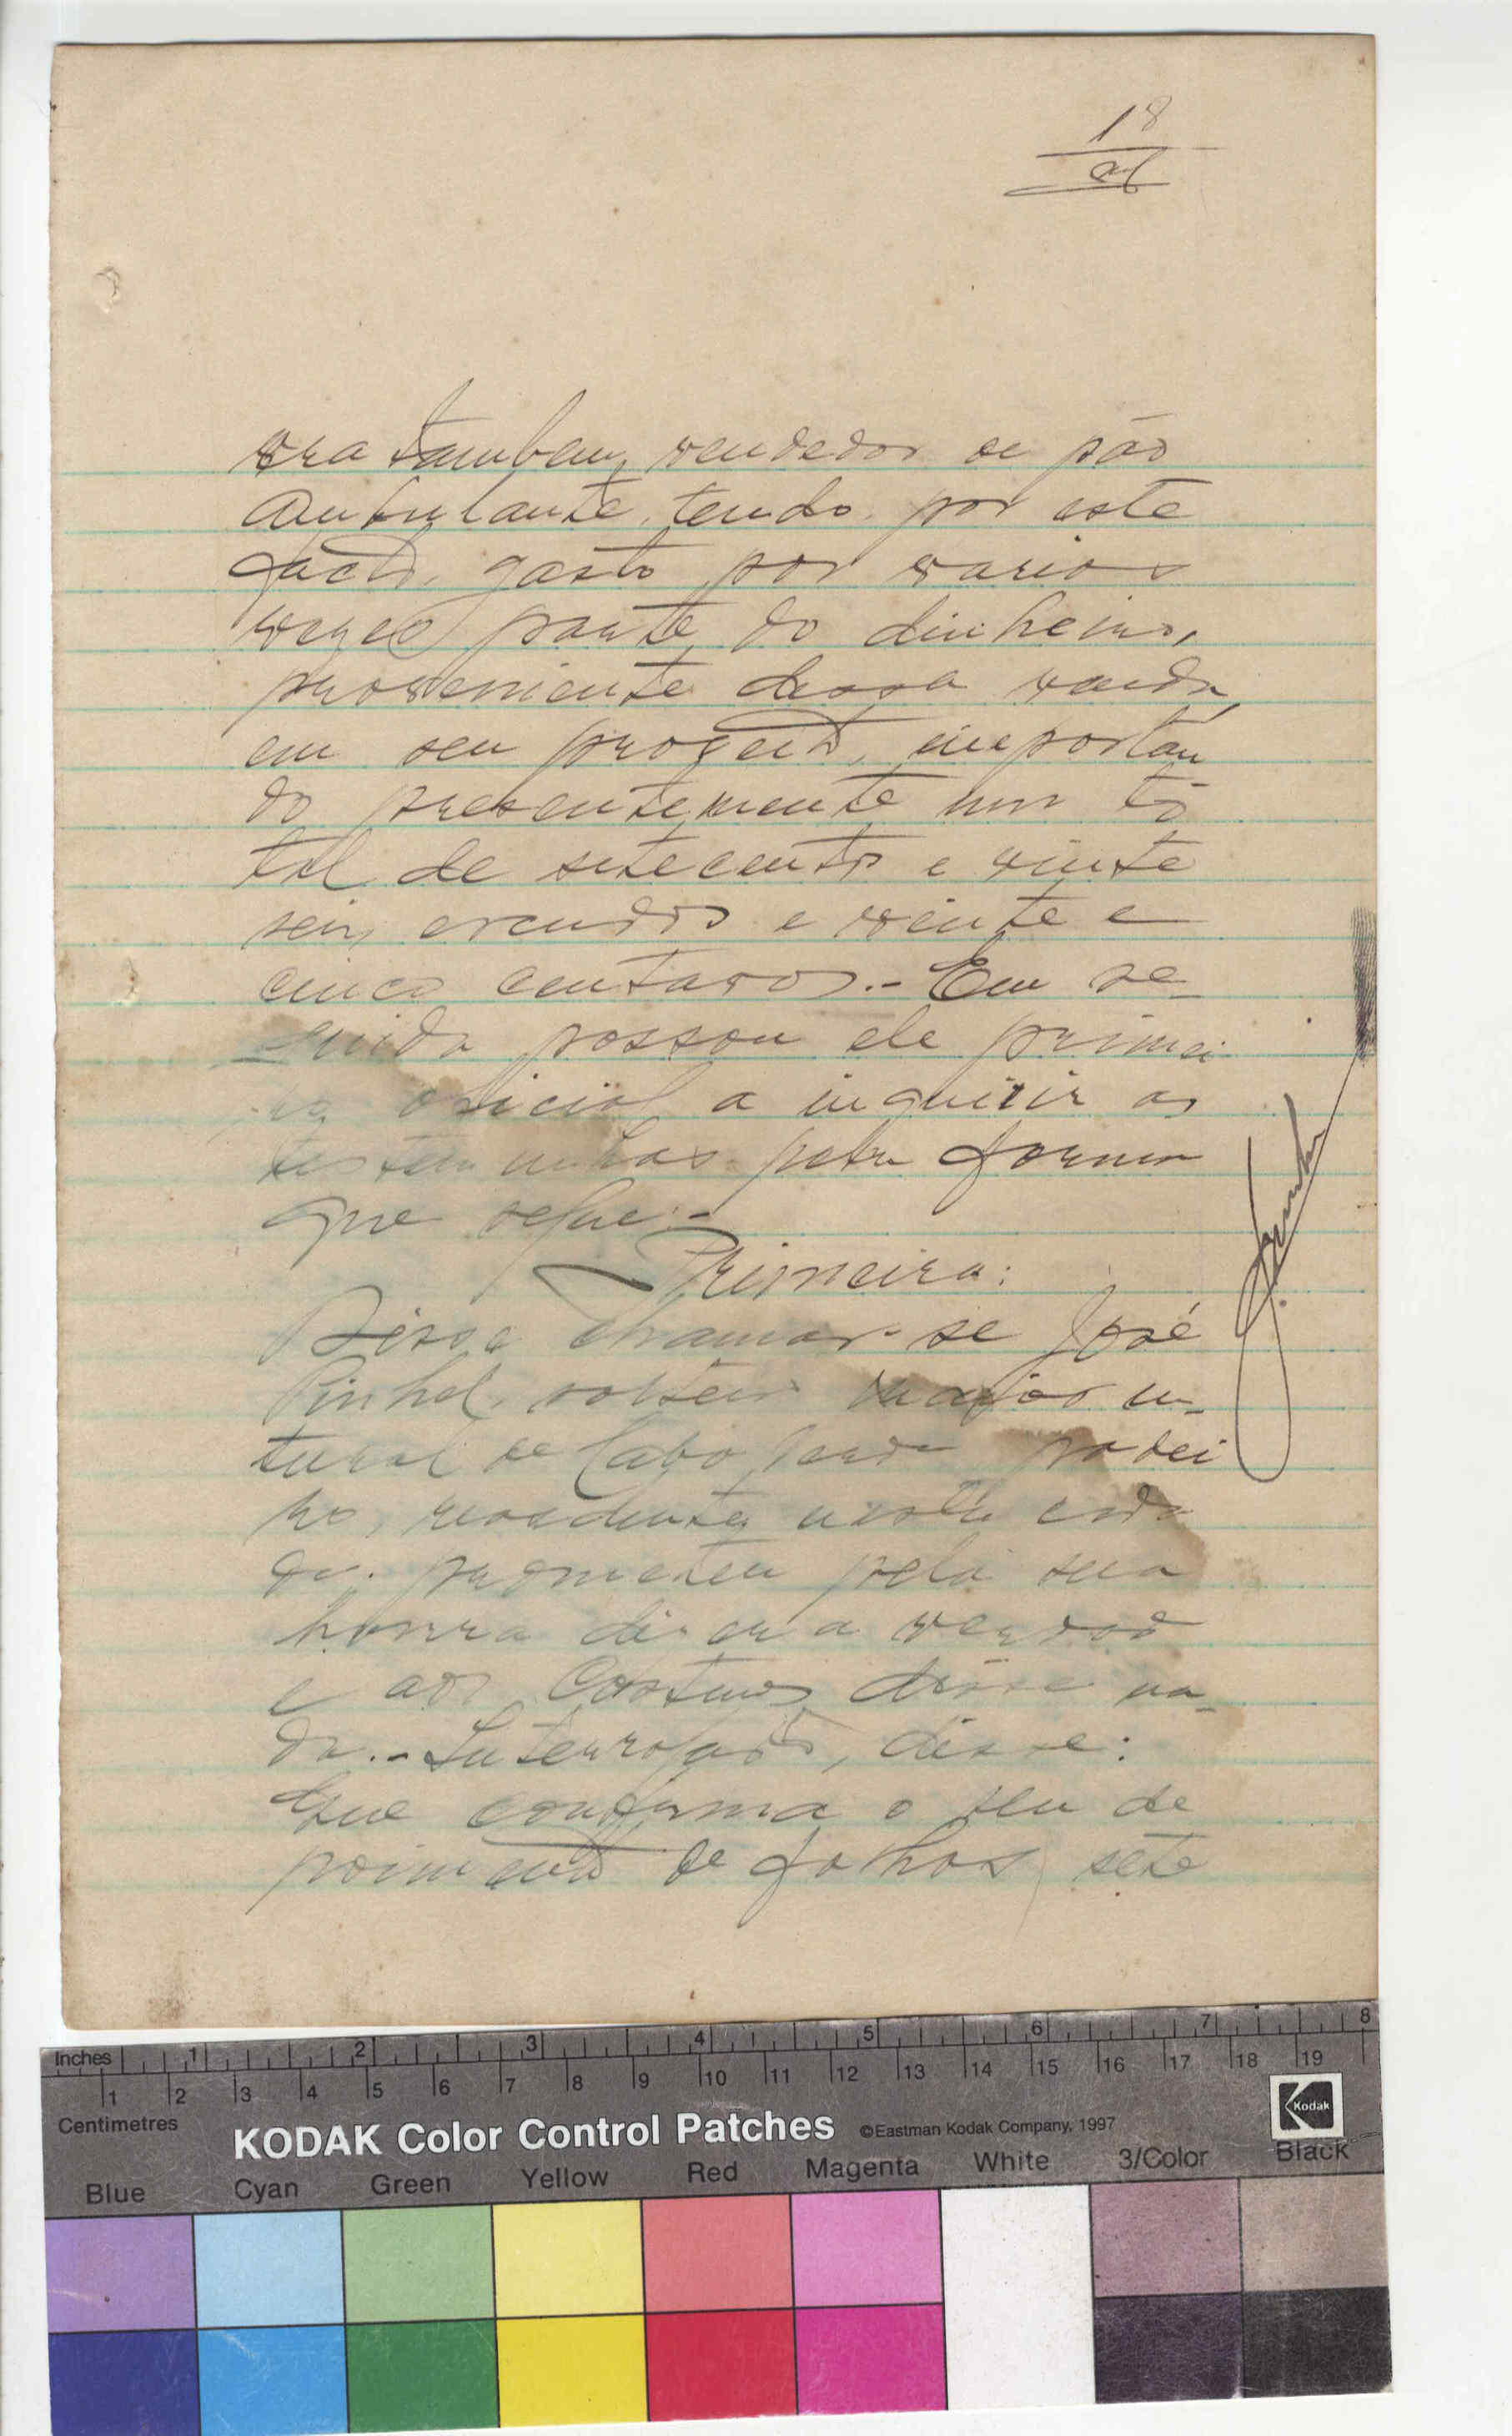 18
era tambem, vendedor de pão
ambulante, tendo por este
facto, gasto por varias
vezes parte do dinheiro,
proveniente dessa venda,
em seu proveito, importan
do presentemente num to
tal de setecentos e vinte
seis escudos e vinte e
cinco centavos.- Em se-
guida passou ele primei
ro oficial a inquirir as
testemunhas pela forma
que segue:-
Primeira:
Disse chamar-se José
Pinhel, solteiro maior na-
tural de Cabo Verde padei
ro, residente nesta cida
de. prometeu pela sua
honra dizer a verdade
e aos costumes disse na-
da.- Interrogado, disse:
Que confirma o seu de
poimento de folhas sete
Inches 1 2 3 4 5 6 7 8
Centimetres 1 2 3 4 5 6 7 8 9 10 11 12 13 14 15 16 17 18 19
KODAK Color Control Patches ©Eastman Kodak Company, 1997 Kodak
Blue Cyan Green Yellow Red Magenta White 3/Color Black